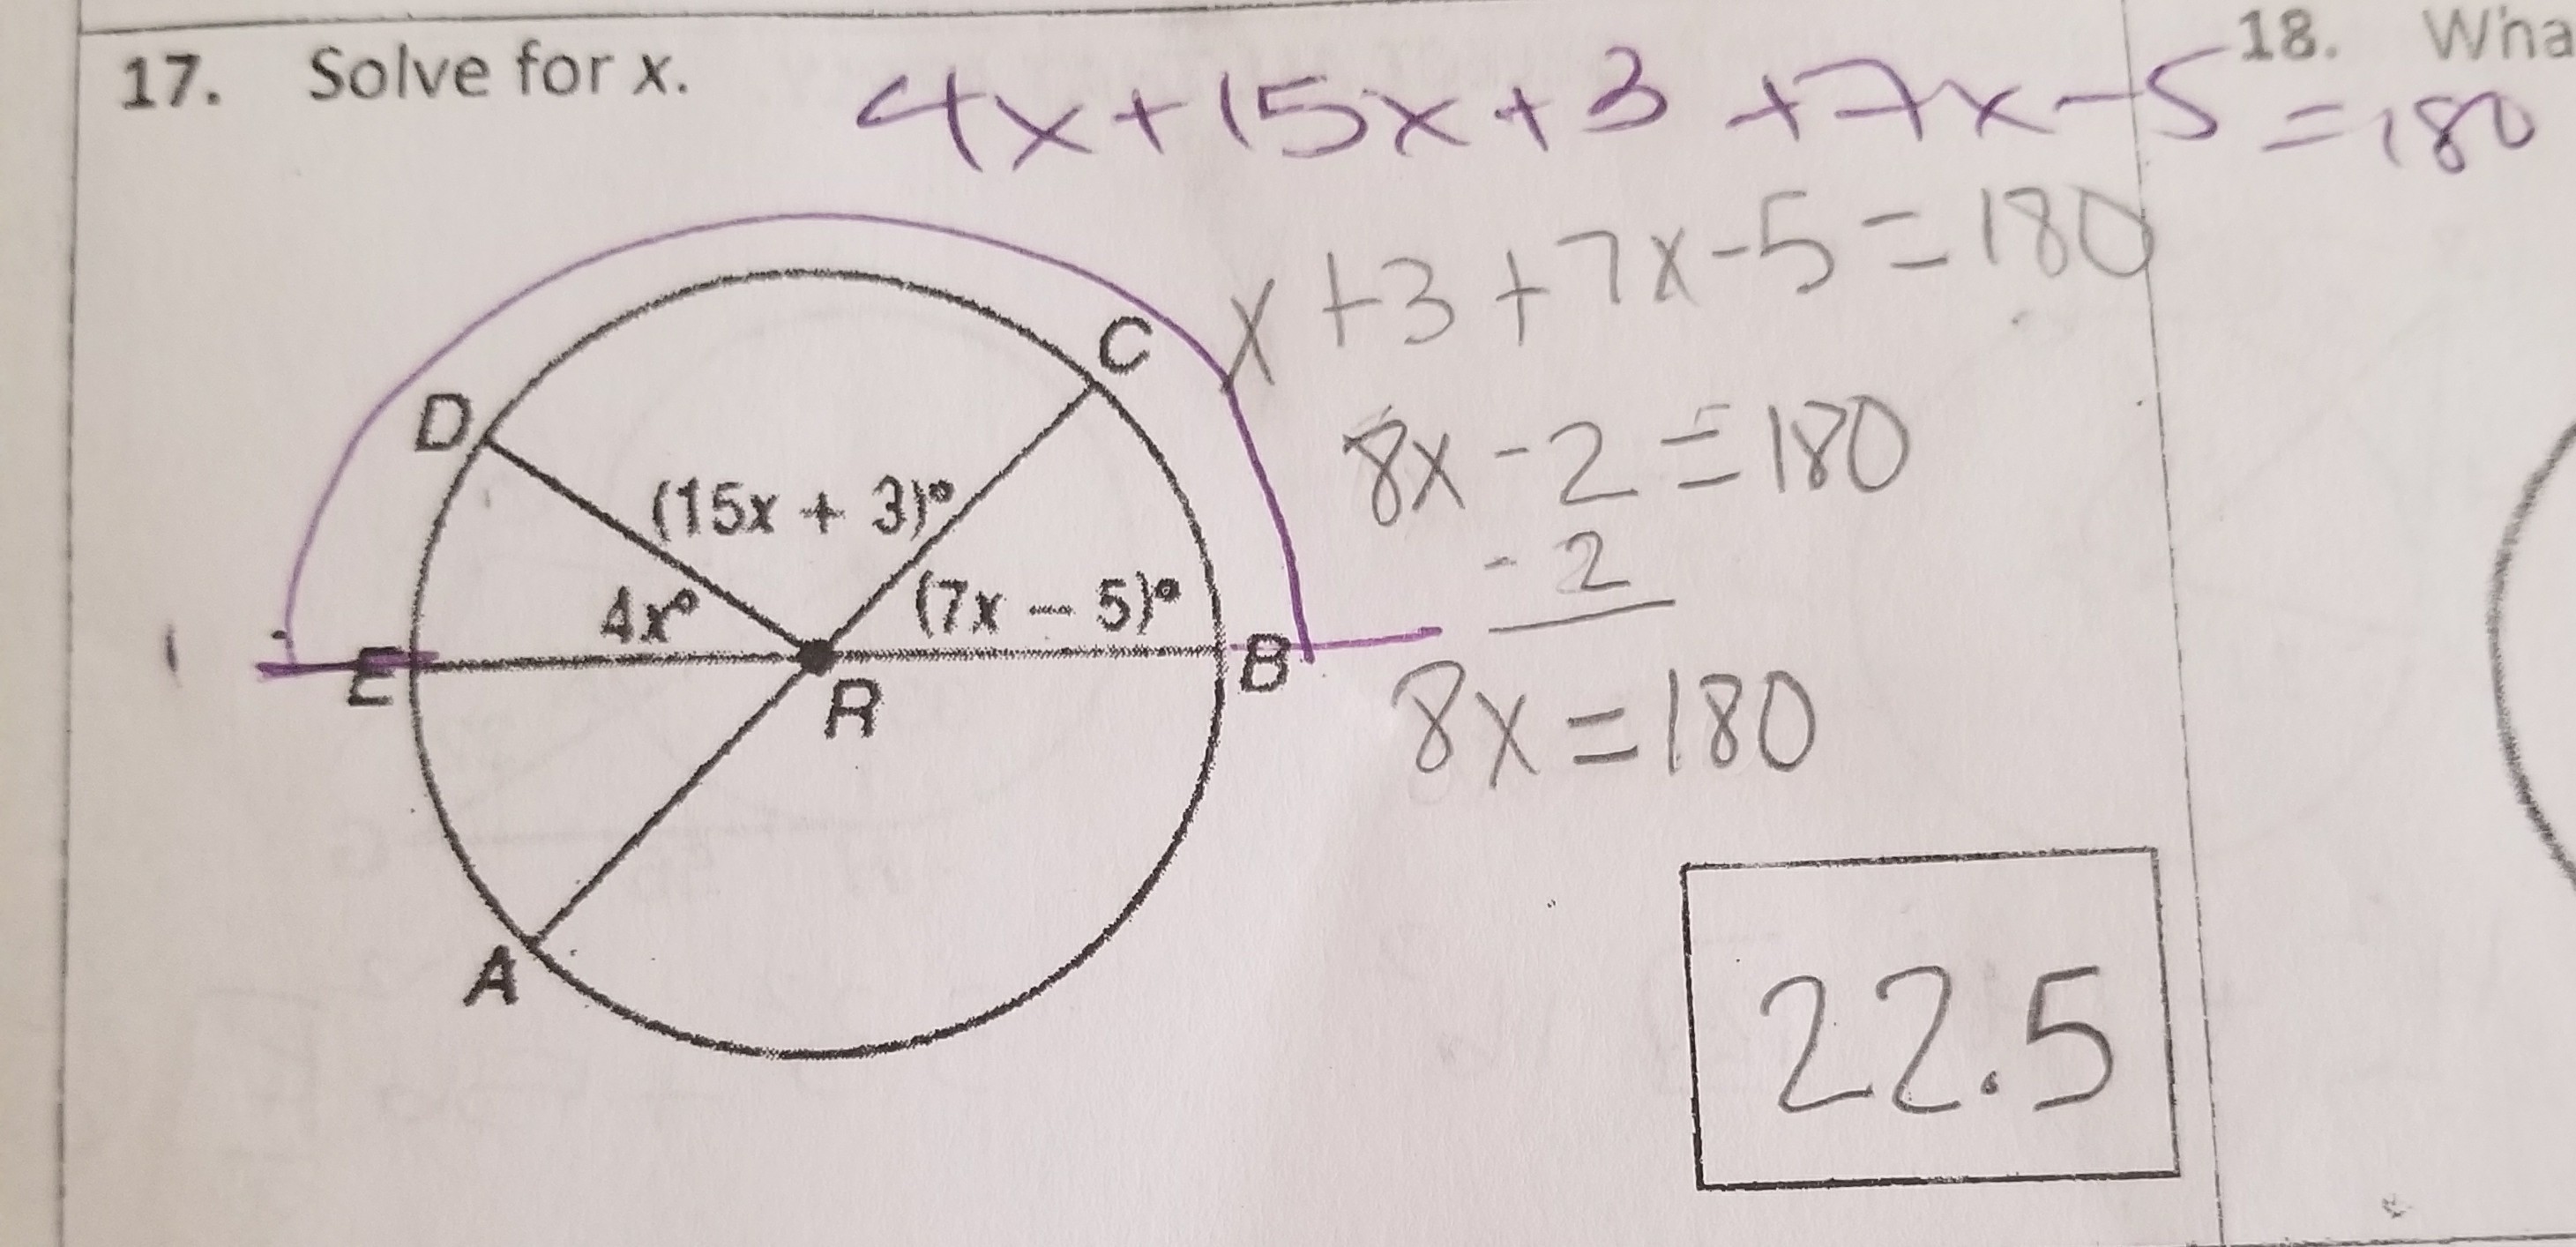 17. Solve for x.
4x+15x+3+7x-5
=180
18.
x+3+7x-5=180
C
D
8x-2=180
(15x + 3)°
-2
4x°
(7x - 5)°
E
R
B
8x=180
A
22.5